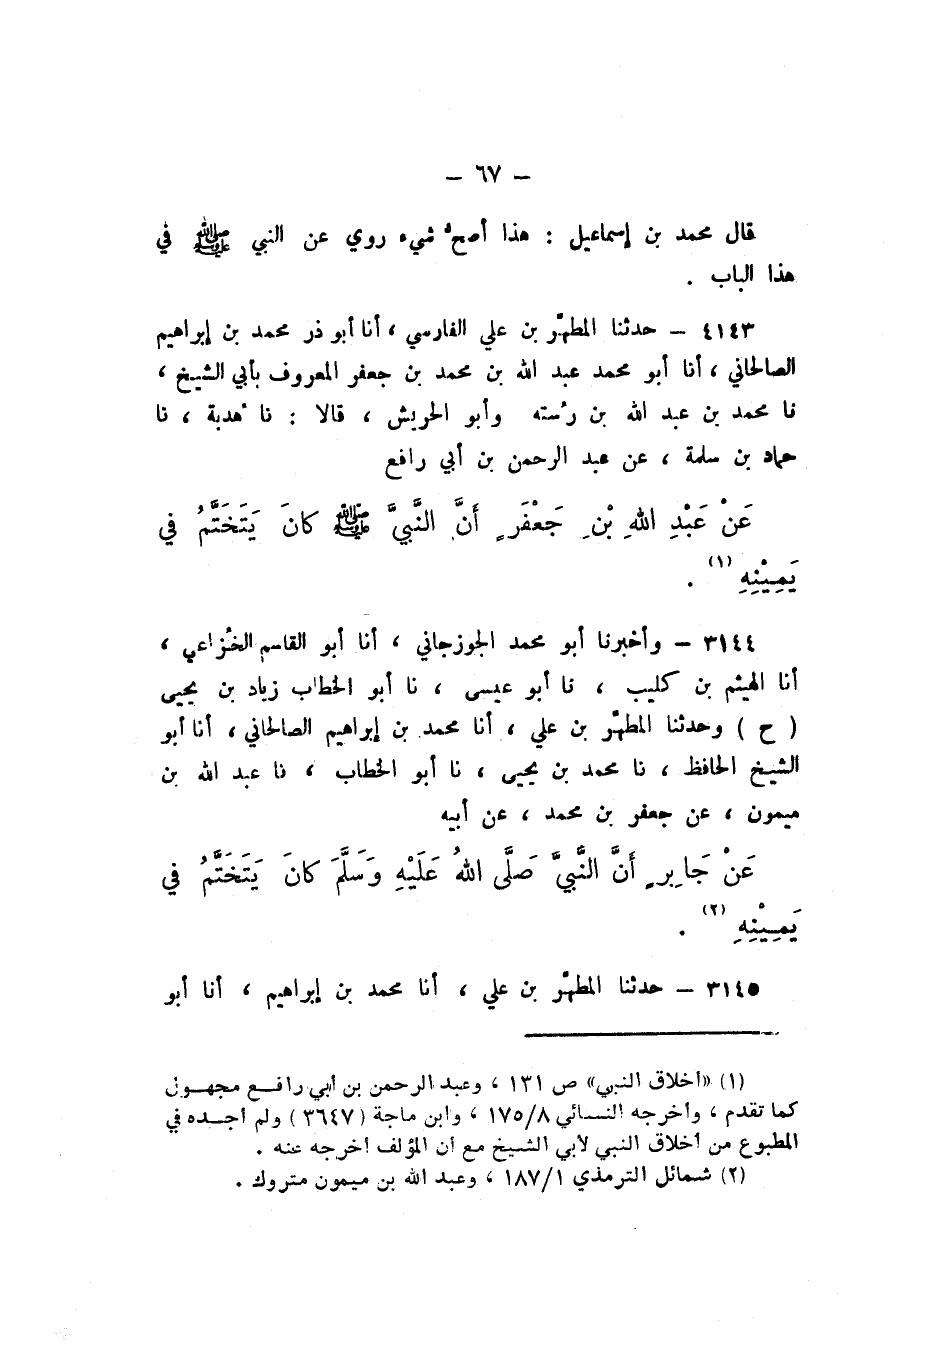 – ٦٧ –
قال محمد بن إسماعيل : هذا أصحّ شيء روي عن النبي ﷺ في
هذا الباب .
٤١٤٣ – حدثنا المطهّر بن علي الفارسي ، أنا أبو ذر محمد بن إبراهيم
الصالحاني ، أنا أبو محمد عبد الله بن محمد بن جعفر المعروف بأبي الشيخ ،
نا محمد بن عبد الله بن رُسته وأبو الحريش ، قالا : نا هُدبة ، نا
حماد بن سلمة ، عن عبد الرحمن بن أبي رافع
عَنْ عَبْدِ اللهِ بْنِ جَعْفَرٍ أَنَّ النَّبِيَّ ﷺ كانَ يَتَخَتَّمُ في
يَمِيْنِهِ (١) .
٣١٤٤ – وأخبرنا أبو محمد الجوزجاني ، أنا أبو القاسم الخُزاعي ،
أنا الهيثم بن كليب ، نا أبو عيسى ، نا أبو الخطاب زياد بن يحيى
( ح ) وحدثنا المطهّر بن علي ، أنا محمد بن إبراهيم الصالحاني ، أنا أبو
الشيخ الحافظ ، نا محمد بن يحيى ، نا أبو الخطاب ، نا عبد الله بن
ميمون ، عن جعفر بن محمد ، عن أبيه
عَنْ جَابِرٍ أَنَّ النَّبِيَّ صَلَّى اللهُ عَلَيْهِ وَسَلَّمَ كانَ يَتَخَتَّمُ في
يَمِيْنِهِ (٢) .
٣١٤٥ – حدثنا المطهّر بن علي ، أنا محمد بن إبراهيم ، أنا أبو
(١) «أخلاق النبي» ص ١٣١ ، وعبد الرحمن بن أبي رافع مجهول
كما تقدم ، وأخرجه النسائي ١٧٥/٨ ، وابن ماجة (٣٦٤٧) ولم أجده في
المطبوع من أخلاق النبي لأبي الشيخ مع أن المؤلف أخرجه عنه .
(٢) شمائل الترمذي ١٨٧/١ ، وعبد الله بن ميمون متروك .